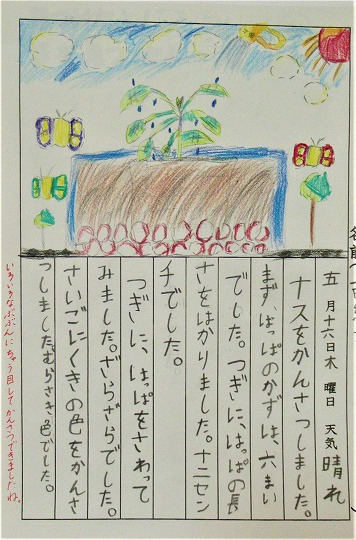 五月十六日木曜日天気晴れ
ナスをかんさつしました。
まずはっぱのかずは、六まい
でした。つぎに、はっぱの長
さをはかりました。十二セン
チでした。
つぎに、はっぱをさわって
みました。ざらざらでした。
さいごにくきの色をかんさ
つしました。むらさき色でした。
いろいろなぶぶんにちゅう目してかんさつできましたね。